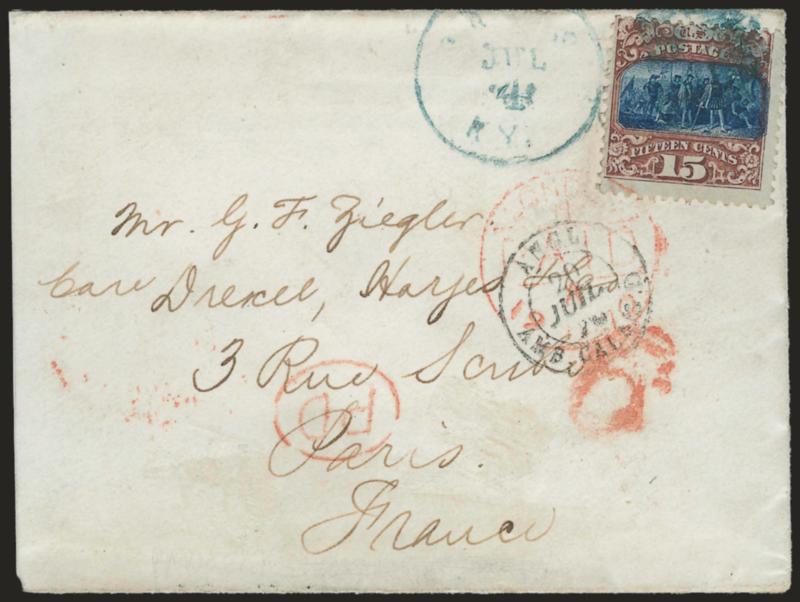 JUL
KY.
U.S.
POSTAGE
FIFTEEN CENTS
15
Mr. G. F. Ziegler.
Care Drexel, Harjes & Co
3 Rue Scribe
Paris.
France
ANGL.
20
JUIL.
AMB. CALAIS D
PD